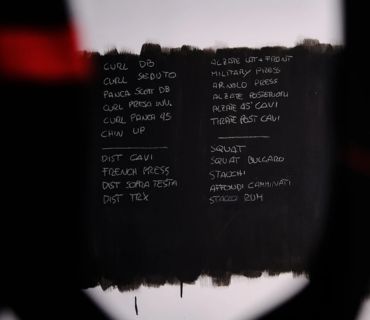 CURL DB
CURL SEDUTO
PANCA SCOTT DB
CURL PRESA INV.
CURL PANCA 45
CHIN UP
DIST CAVI
FRENCH PRESS
DIST SOPRA TESTA
DIST TRX
ALZATE LAT + FRONT
MILITARY PRESS
ARNOLD PRESS
ALZATE POSTERIORI
ALZATE 45° CAVI
TIRATE POST CAVI
SQUAT
SQUAT BULGARO
STACCHI
AFFONDI CAMMINATI
STACCO RUM